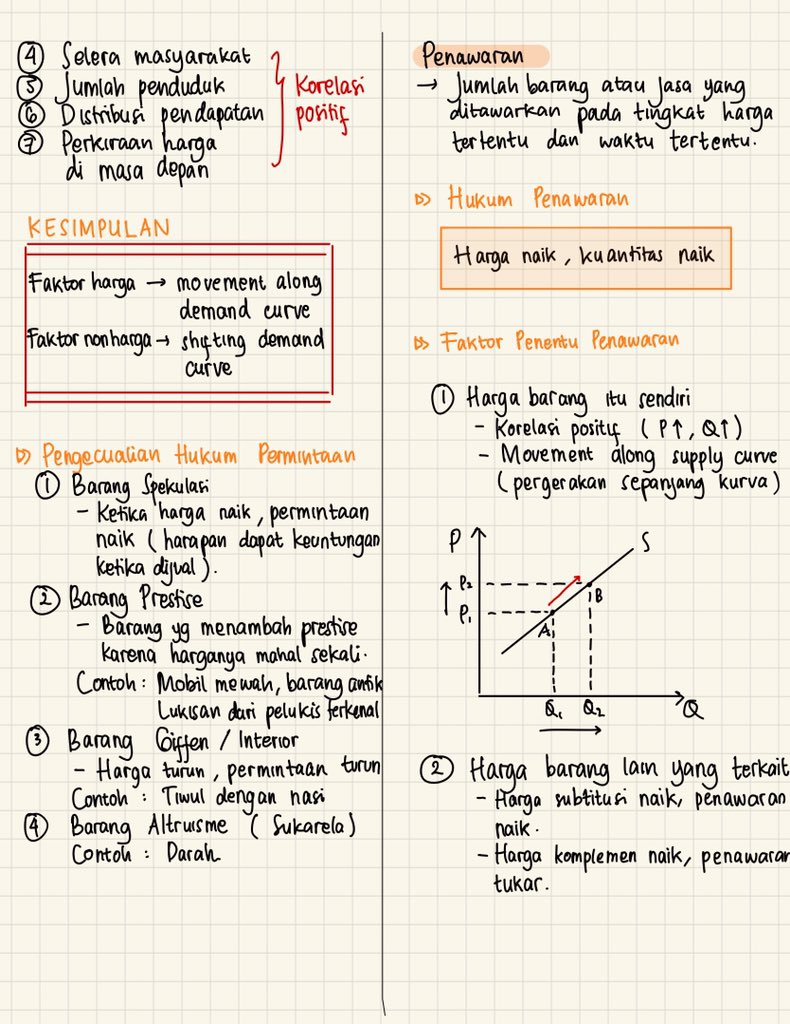 ④ Selera masyarakat
⑤ Jumlah penduduk
⑥ Distribusi pendapatan
⑦ Perkiraan harga
di masa depan
Korelasi
positif
KESIMPULAN
Faktor harga → movement along
demand curve
Faktor nonharga → shifting demand
curve
Pengecualian Hukum Permintaan
① Barang Spekulasi
- Ketika harga naik, permintaan
naik (harapan dapat keuntungan
ketika dijual).
② Barang Prestise
- Barang yg menambah prestise
karena harganya mahal sekali.
Contoh : Mobil mewah, barang antik
Lukisan dari pelukis terkenal
③ Barang Giffen / Interior
- Harga turun, permintaan turun
Contoh : Tiwul dengan nasi
④ Barang Altruisme (Sukarela)
Contoh : Darah
Penawaran
→ Jumlah barang atau jasa yang
ditawarkan pada tingkat harga
tertentu dan waktu tertentu.
Hukum Penawaran
Harga naik, kuantitas naik
Faktor Penentu Penawaran
① Harga barang itu sendiri
- Korelasi positif (P↑, Q↑)
- Movement along supply curve
(pergerakan sepanjang kurva)
P
S
P₂
B
↑ P₁
A
Q₁ Q₂
Q
② Harga barang lain yang terkait
- Harga subtitusi naik, penawaran
naik.
- Harga komplemen naik, penawaran
tukar.